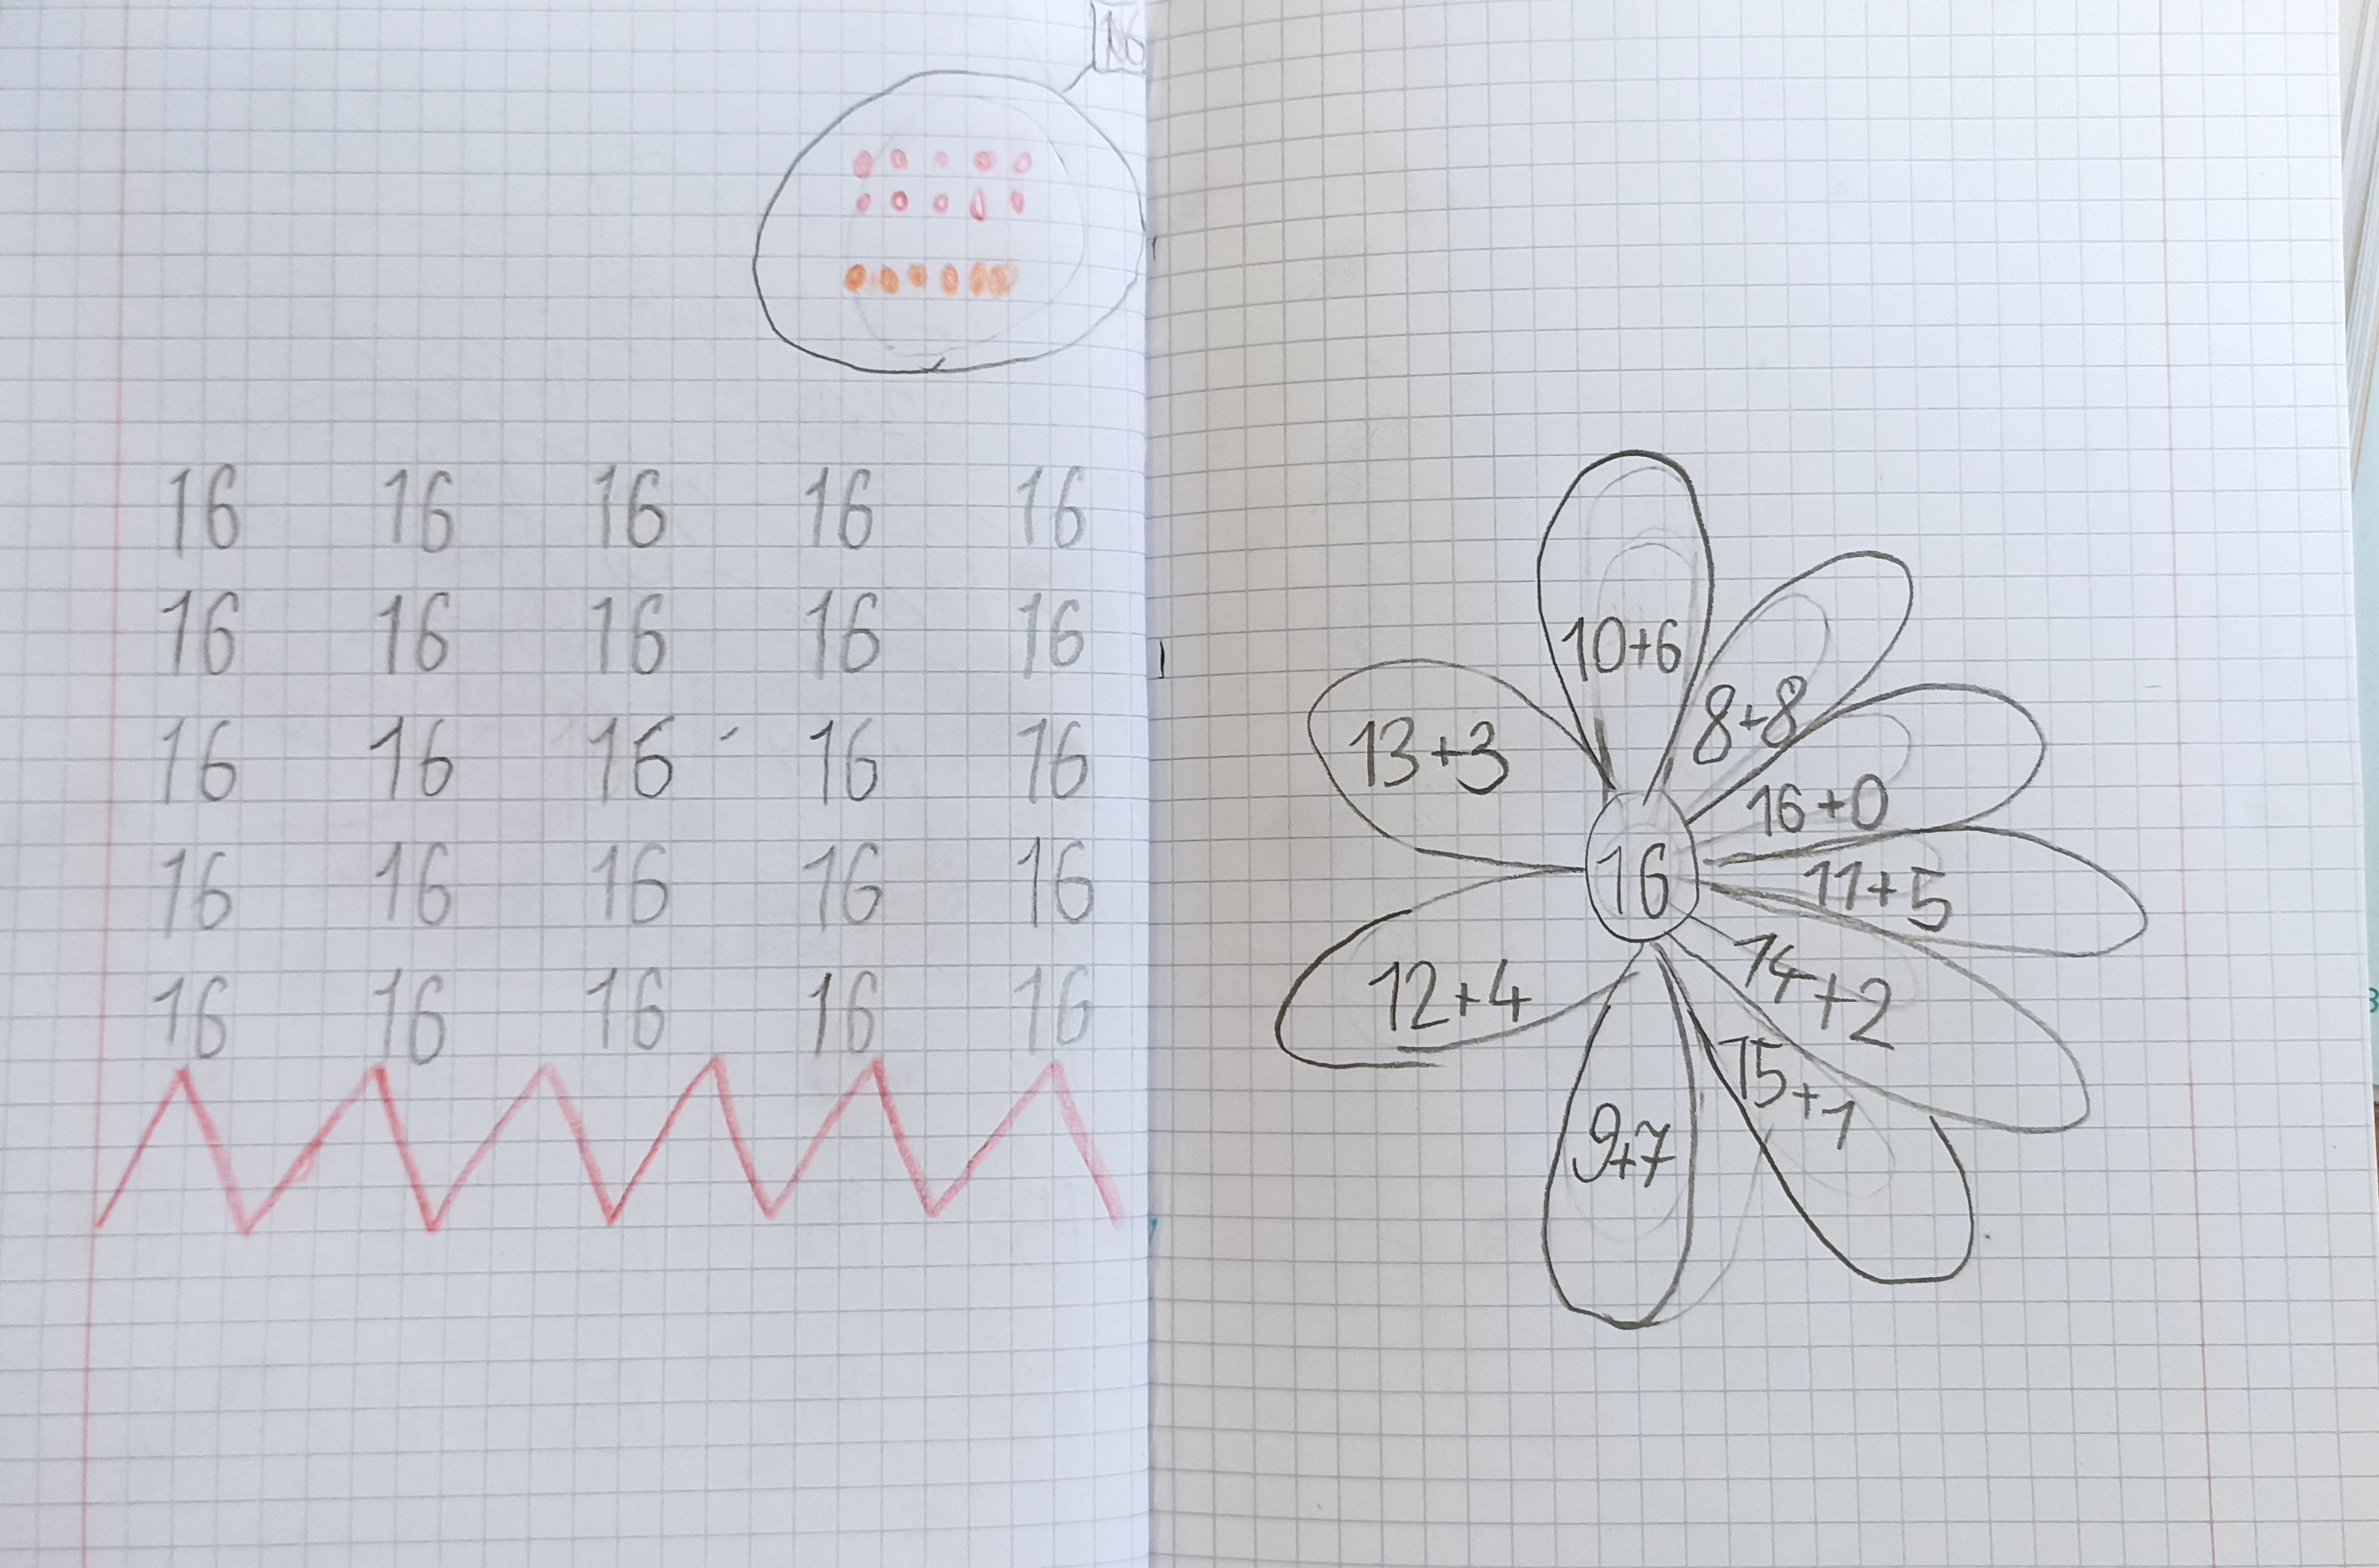 16
16 16 16 16 16
16 16 16 16 16
16 16 16 16 16
16 16 16 16 16
16 16 16 16 16
10+6
8+8
13+3
16+0
16
11+5
14+2
12+4
15+1
9+7